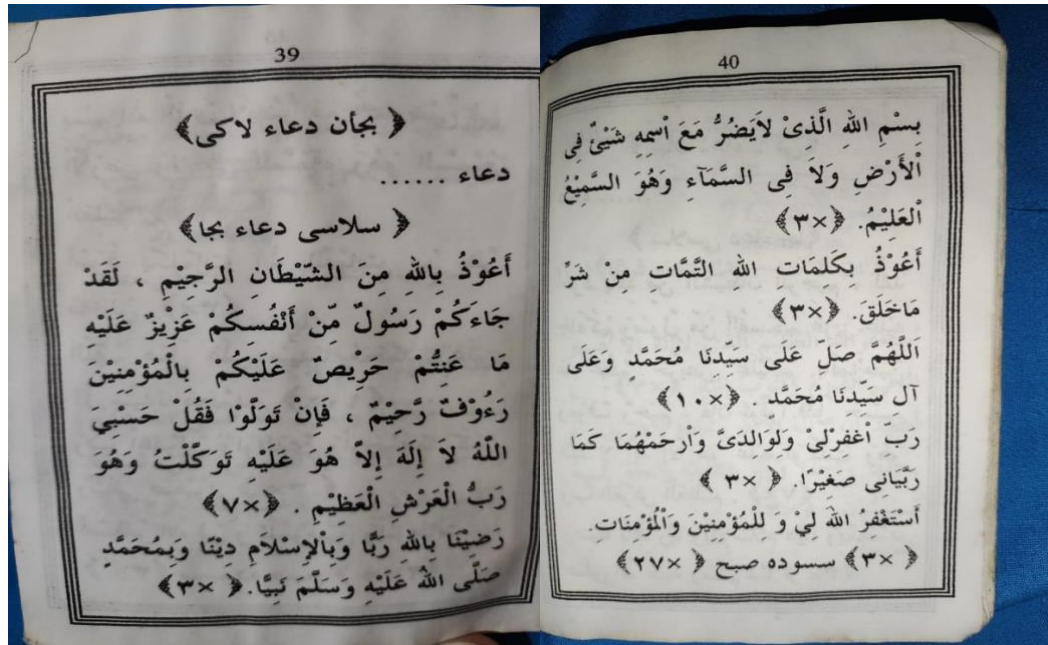 39
﴿ بجأن دعاء لاكى﴾
دعاء ......
﴿ سلاسى دعاء بجا﴾
أَعُوْذُ بِاللهِ مِنَ الشَّيْطَانِ الرَّجِيْمِ ، لَقَدْ
جَاءَكُمْ رَسُولٌ مِّنْ أَنْفُسِكُمْ عَزِيْزٌ عَلَيْهِ
مَا عَنِتُّمْ حَرِيْصٌ عَلَيْكُمْ بِالْمُؤْمِنِيْنَ
رَءُوْفٌ رَّحِيْمٌ ، فَإِنْ تَوَلَّوْا فَقُلْ حَسْبِيَ
اللهُ لاَ إِلَهَ إِلاَّ هُوَ عَلَيْهِ تَوَكَّلْتُ وَهُوَ
رَبُّ الْعَرْشِ الْعَظِيْمِ . ﴿×٧﴾
رَضِيْنَا بِاللهِ رَبًّا وَبِاْلإِسْلاَمِ دِيْنًا وَبِمُحَمَّدٍ
صَلَّى اللهُ عَلَيْهِ وَسَلَّمَ نَبِيَّا. ﴿ ×٣﴾
40
بِسْمِ اللهِ الَّذِىْ لاَيَضُرُّ مَعَ اْسمِهِ شَيْئٌ فِى
اْلأَرْضِ وَلاَ فِى السَّمَآءِ وَهُوَ السَّمِيْعُ
اْلعَلِيْمُ. ﴿×٣﴾
أَعُوْذُ بِكَلِمَات اللهِ التَّمَّات مِنْ شَرِّ
مَاخَلَقَ. ﴿×٣﴾
اَللَّهُمَّ صَلِّ عَلَى سَيِّدِنَا مُحَمَّدٍ وَعَلَى
آلِ سَيِّدِنَا مُحَمَّدٍ . ﴿×١٠﴾
رَبِّ اْغفِرْلىْ وَلِوَالِدَىَّ وَاْرحَمْهُمَا كَمَا
رَبَّيَانِى صَغِيْرًا. ﴿ ×٣ ﴾
أَسْتَغْفِرُ اللهَ لِيْ وَ لِلْمُؤْمِنِيْنَ وَاْلمُؤْمِنَاتِ.
﴿ ×٣﴾ سسوده صبح ﴿ ×٢٧﴾